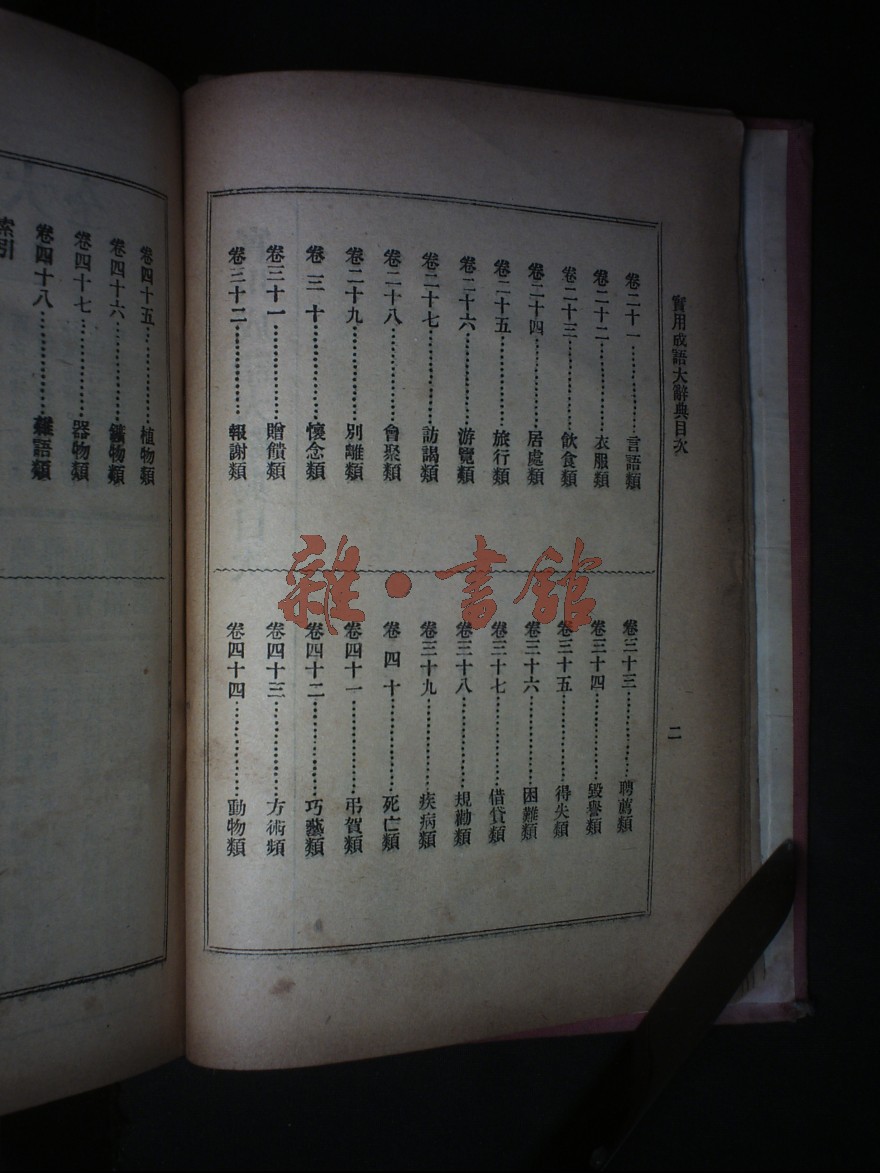 實用成語大辭典目次
二
卷二十一…………言語類
卷二十二…………衣服類
卷二十三…………飲食類
卷二十四…………居處類
卷二十五…………旅行類
卷二十六…………游覽類
卷二十七…………訪謁類
卷二十八…………會聚類
卷二十九…………別離類
卷三十…………懷念類
卷三十一…………贈饋類
卷三十二…………報謝類
卷三十三…………聘薦類
卷三十四…………毀譽類
卷三十五…………得失類
卷三十六…………困難類
卷三十七…………借貸類
卷三十八…………規勸類
卷三十九…………疾病類
卷四十…………死亡類
卷四十一…………弔賀類
卷四十二…………巧藝類
卷四十三…………方術類
卷四十四…………動物類
卷四十五…………植物類
卷四十六…………鑛物類
卷四十七…………器物類
卷四十八…………雜語類
索引
雜·書館